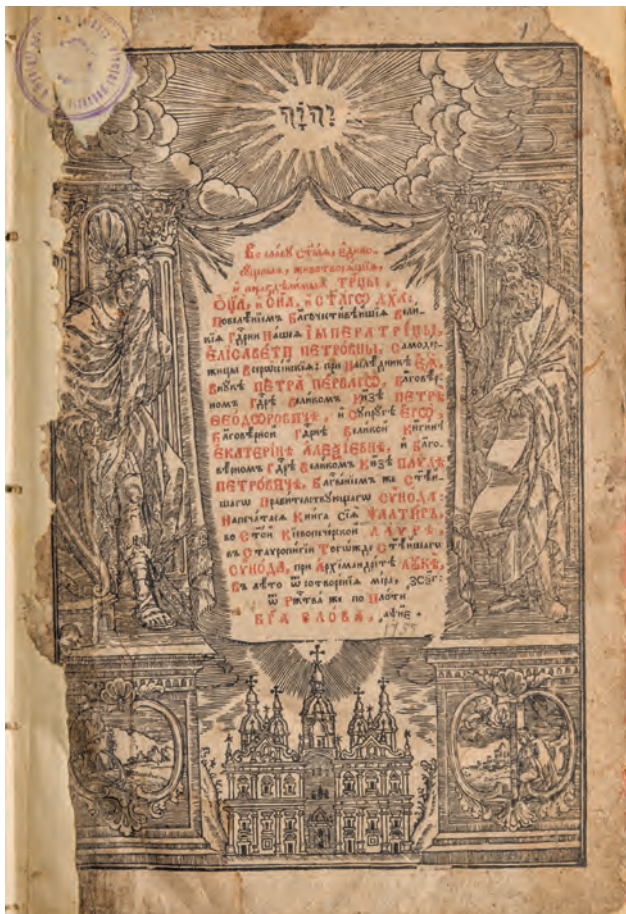 1
יהוה
Во славу ст҃ыѧ, єдино-
сущныѧ, животворѧщїѧ,
и нераздѣлимыѧ ТРЦ҃Ы,
ОЦ҃А, и СН҃А, и СТ҃АГѠ ДХ҃А:
Повелѣнїемъ Бл҃гочестивѣйшїѧ Вели-
кїѧ Гдр҃ни Нашеѧ ІМПЕРАТРІЦЫ,
ЕЛІСАВЕТЫ ПЕТРОВНЫ, Самодер-
жицы Всерѡссїйскїѧ: при Наслѣдникѣ ЕѦ,
Внукѣ ПЕТРА ПЕРВАГѠ, Бл҃говѣр-
номъ Гдр҃ѣ Великомъ Кн҃зѣ ПЕТРѢ
ѲЕОДѠРОВИЧѢ, и Супругѣ ЕГѠ,
Бл҃говѣрной Гдр҃нѣ Великой Кн҃гинѣ
ЕКАТЕРІНѢ АЛЕѮІЕВНѢ, и Бл҃го-
вѣрномъ Гдр҃ѣ Великомъ Кн҃зѣ ПАѴЛѢ
ПЕТРОВИЧѢ, Бл҃гвⷭ҇нїемъ же Ст҃ѣй-
шагѡ Правителствующагѡ СѴНОДА:
Напечатасѧ Книга Сїѧ ѰАЛТИРЬ,
во Ст҃ой Кїевопечерской ЛАѴРѢ,
въ Стаѵропигїи Тогѡжде Ст҃ѣйшагѡ
СѴНОДА, при Архімандрітѣ ЛУКѢ,
Въ лѣто ѿ сотворенїѧ міра, ҂зсѯг:
ѿ Рж҃тва же по Плоти
БГ҃А СЛОВА, ҂аѱне.
1755